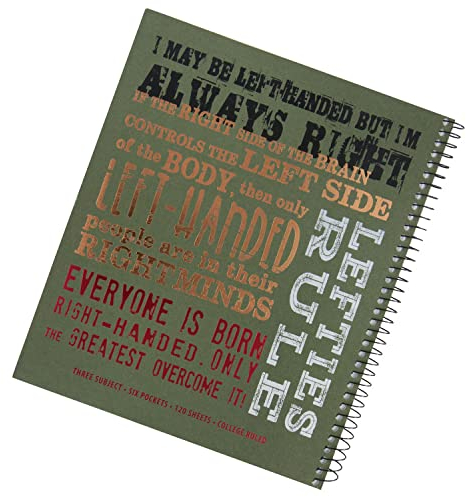 I MAY BE LEFT-HANDED BUT I'M
ALWAYS RIGHT
IF THE RIGHT SIDE OF THE BRAIN
CONTROLS THE LEFT SIDE
of the BODY, then only
LEFT-HANDED
people are in their
RIGHT MINDS
LEFTIES
RULE
EVERYONE IS BORN
RIGHT-HANDED. ONLY
THE GREATEST OVERCOME IT!
THREE SUBJECT • SIX POCKETS • 120 SHEETS • COLLEGE RULED